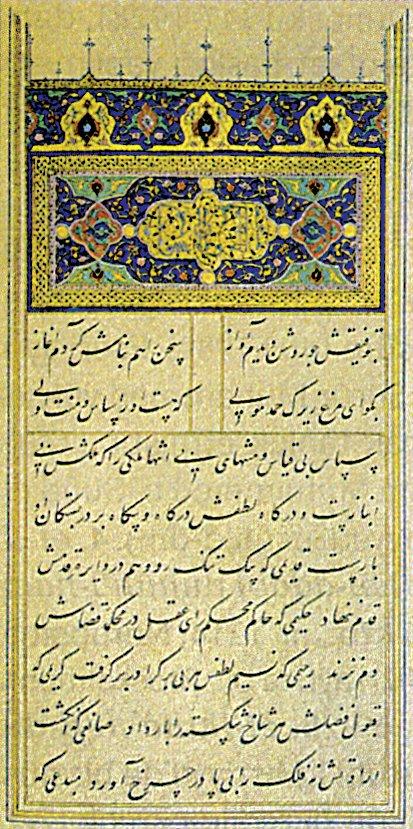 بتوفیقش چو روشن دیدم آواز سخن را هم بنامش کردم آغاز
بگو ای مرغ زیرک حمد مولی که هست او را سپاس و منت اولی
سپاس بی قیاس و منتهای بی انتها ملکی را که ملکش بی
انبازست و درگاه لطفش درگاه و بیگاه بر دربستگان او
بازست قدیمی که پیک تک رو وهم در دایره قدمش
قدم ننهاد حکیمی که حاکم محکم رای عقل در محکمه قضاش
دم نزند رحیمی که نسیم لطفش هر بی برگ را در بر گرفت کریمی که
قبول فضلش هر شاخ شکسته را بار داد صانعی که انگشت
ارادتش نه فلک را بی پا در چرخ آورد مبدعی که